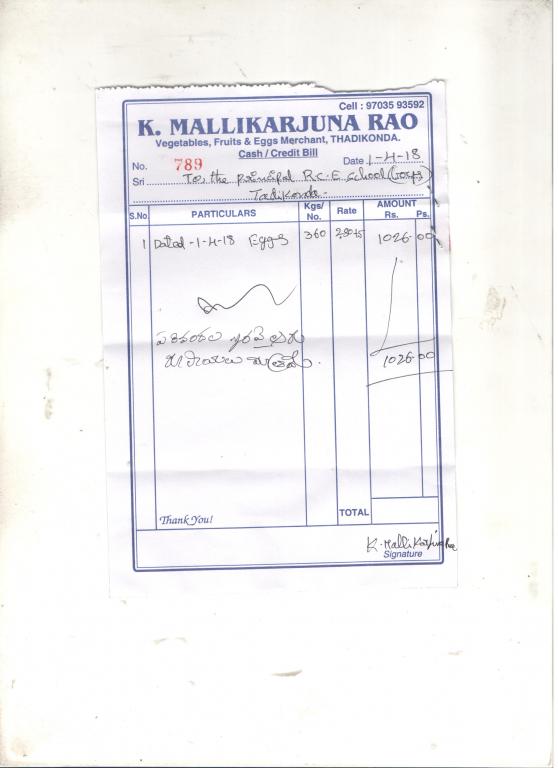 Cell : 97035 93592
K. MALLIKARJUNA RAO
Vegetables, Fruits & Eggs Merchant, THADIKONDA.
Cash / Credit Bill
No. 789 Date 1-4-18
Sri To, the principal R.C.E. School (boys)
Tadikonda.
S.No PARTICULARS Kgs/No. Rate AMOUNT Rs. Ps.
1 Dated-1-4-18 Eggs 360 1026.00
1026.00
Thank You!
TOTAL
K. Mallikarjuna Rao
Signature